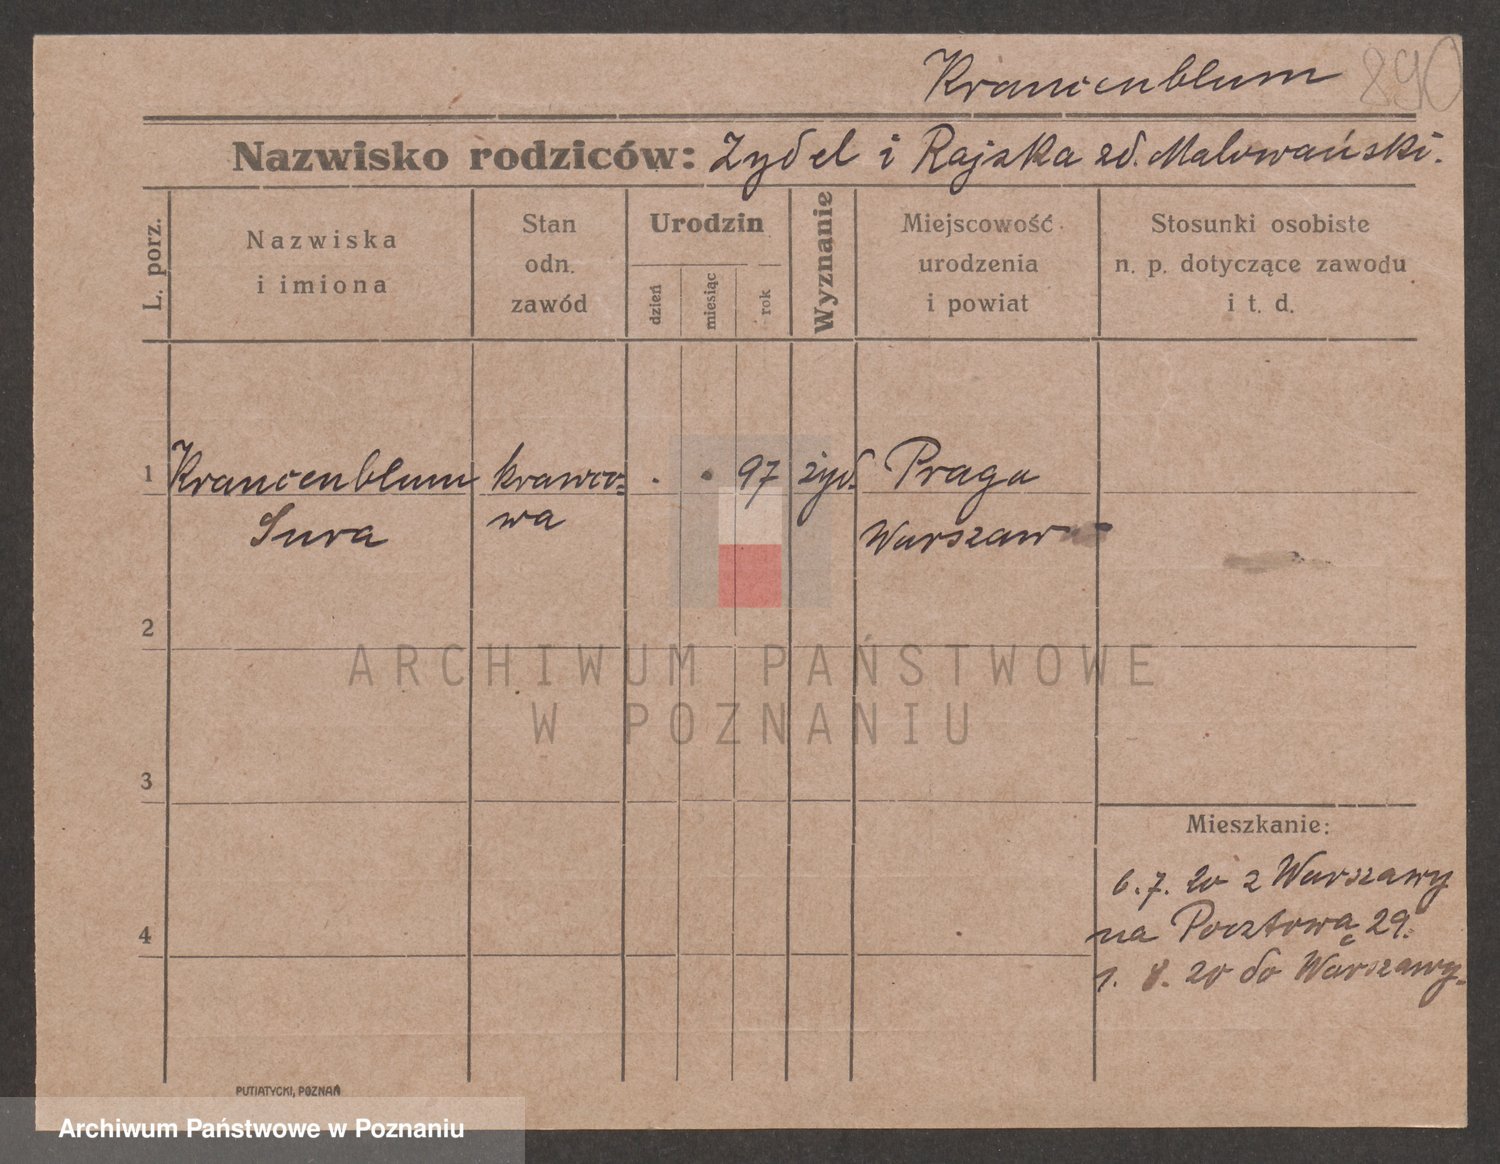 Krancenblum 890
Nazwisko rodziców: Zydel i Rajska zd. Malowański.
L. porz.
Nazwiska
i imiona
Stan
odn.
zawód
Urodzin
dzień
miesiąc
rok
Wyznanie
Miejscowość
urodzenia
i powiat
Stosunki osobiste
n. p. dotyczące zawodu
i t. d.
1 Krancenblum krawco- . . 97 żyd. Praga
Sura wa Warszawa
2
3
4
Mieszkanie:
6. 7. 20 z Warszawy
na Pocztową 29.
1. 8. 20 do Warszawy.
ARCHIWUM PAŃSTWOWE
W POZNANIU
PUTIATYCKI, POZNAŃ
Archiwum Państwowe w Poznaniu